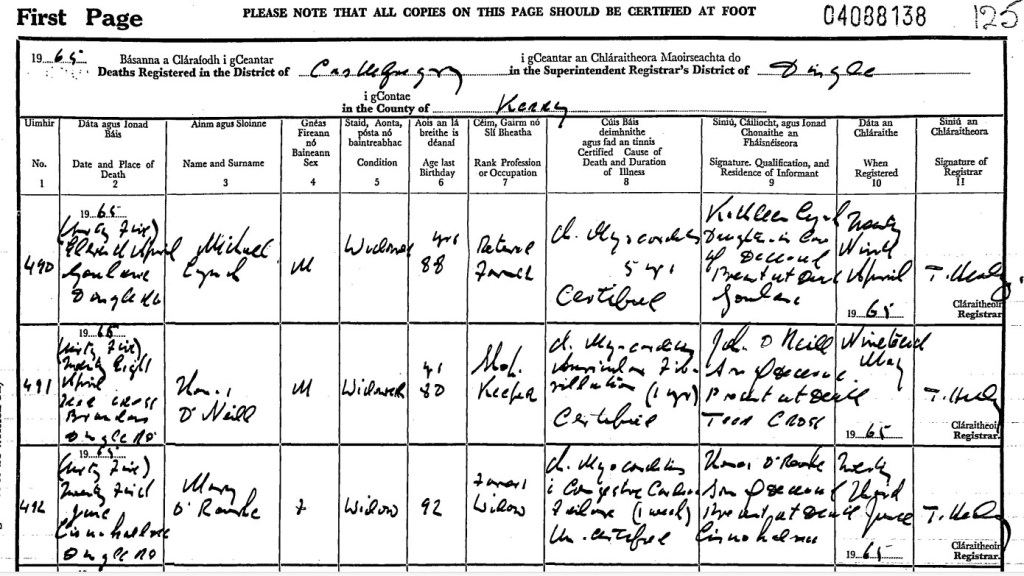 First Page
PLEASE NOTE THAT ALL COPIES ON THIS PAGE SHOULD BE CERTIFIED AT FOOT
04088138
125
19 65 Básanna a Cláraíodh i gCeantar
Deaths Registered in the District of Castlegregory
i gCeantar an Chláraitheora Maoirseachta do
in the Superintendent Registrar's District of Dingle
i gContae
in the County of Kerry
Uimhir
No.
1
Dáta agus Ionad
Báis
Date and Place of
Death
2
Ainm agus Sloinne
Name and Surname
3
Gnéas
Fireann
nó
Baineann
Sex
4
Staid, Aonta,
pósta nó
baintreabhac
Condition
5
Aois an lá
breithe is
déanaí
Age last
Birthday
6
Céim, Gairm nó
Slí Bheatha
Rank Profession
or Occupation
7
Cúis Báis
deimhnithe
agus fad an tinnis
Certified Cause of
Death and Duration
of Illness
8
Siniú, Cáilíocht, agus Ionad
Chonaithe an
Fháisnéiseora
Signature. Qualification, and
Residence of Informant
9
Dáta an
Chláraithe
When
Registered
10
Siniú an
Chláraitheora
Signature of
Registrar
11
490
19 65
(Sixty Five)
April
Dingle RD
Michael
Lynch
M
Widower
yrs
88
Retired
Farmer
Ch. Myocarditis
5 yrs
Certified
Kathleen Lynch
Daughter in Law
of Deceased
Present at Death
Twenty
Ninth
April
19 65
T. Healy
Cláraitheoir
Registrar.
491
19 65
(Sixty Five)
Twenty Eight
April
Teer Cross
Brandon
Dingle RD
Thomas
O'Neill
M
Widower
80
Shop
Keeper
Ch. Myocarditis
Auricular Fib-
rillation (1 yr)
Certified
John O'Neill
Son of Deceased
Present at Death
Teer Cross
Nineteenth
May
19 65
T. Healy
Cláraitheoir
Registrar.
492
19 65
(Sixty Five)
Twenty First
June
Dingle RD
Mary
O'Rourke
F
Widow
92
Farmers
Widow
Ch. Myocarditis
Congestive Cardiac
Failure (1 week)
Un-certified
Thomas O'Rourke
Son of Deceased
Present at Death
Twenty
Third
June
19 65
T. Healy
Cláraitheoir
Registrar.